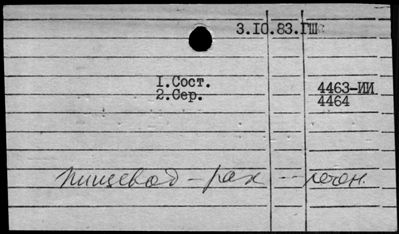 3.10.83.ГШ
1.Сост. 4463-ИИ
2.Сер. 4464
пищевод - рак -- лечен.